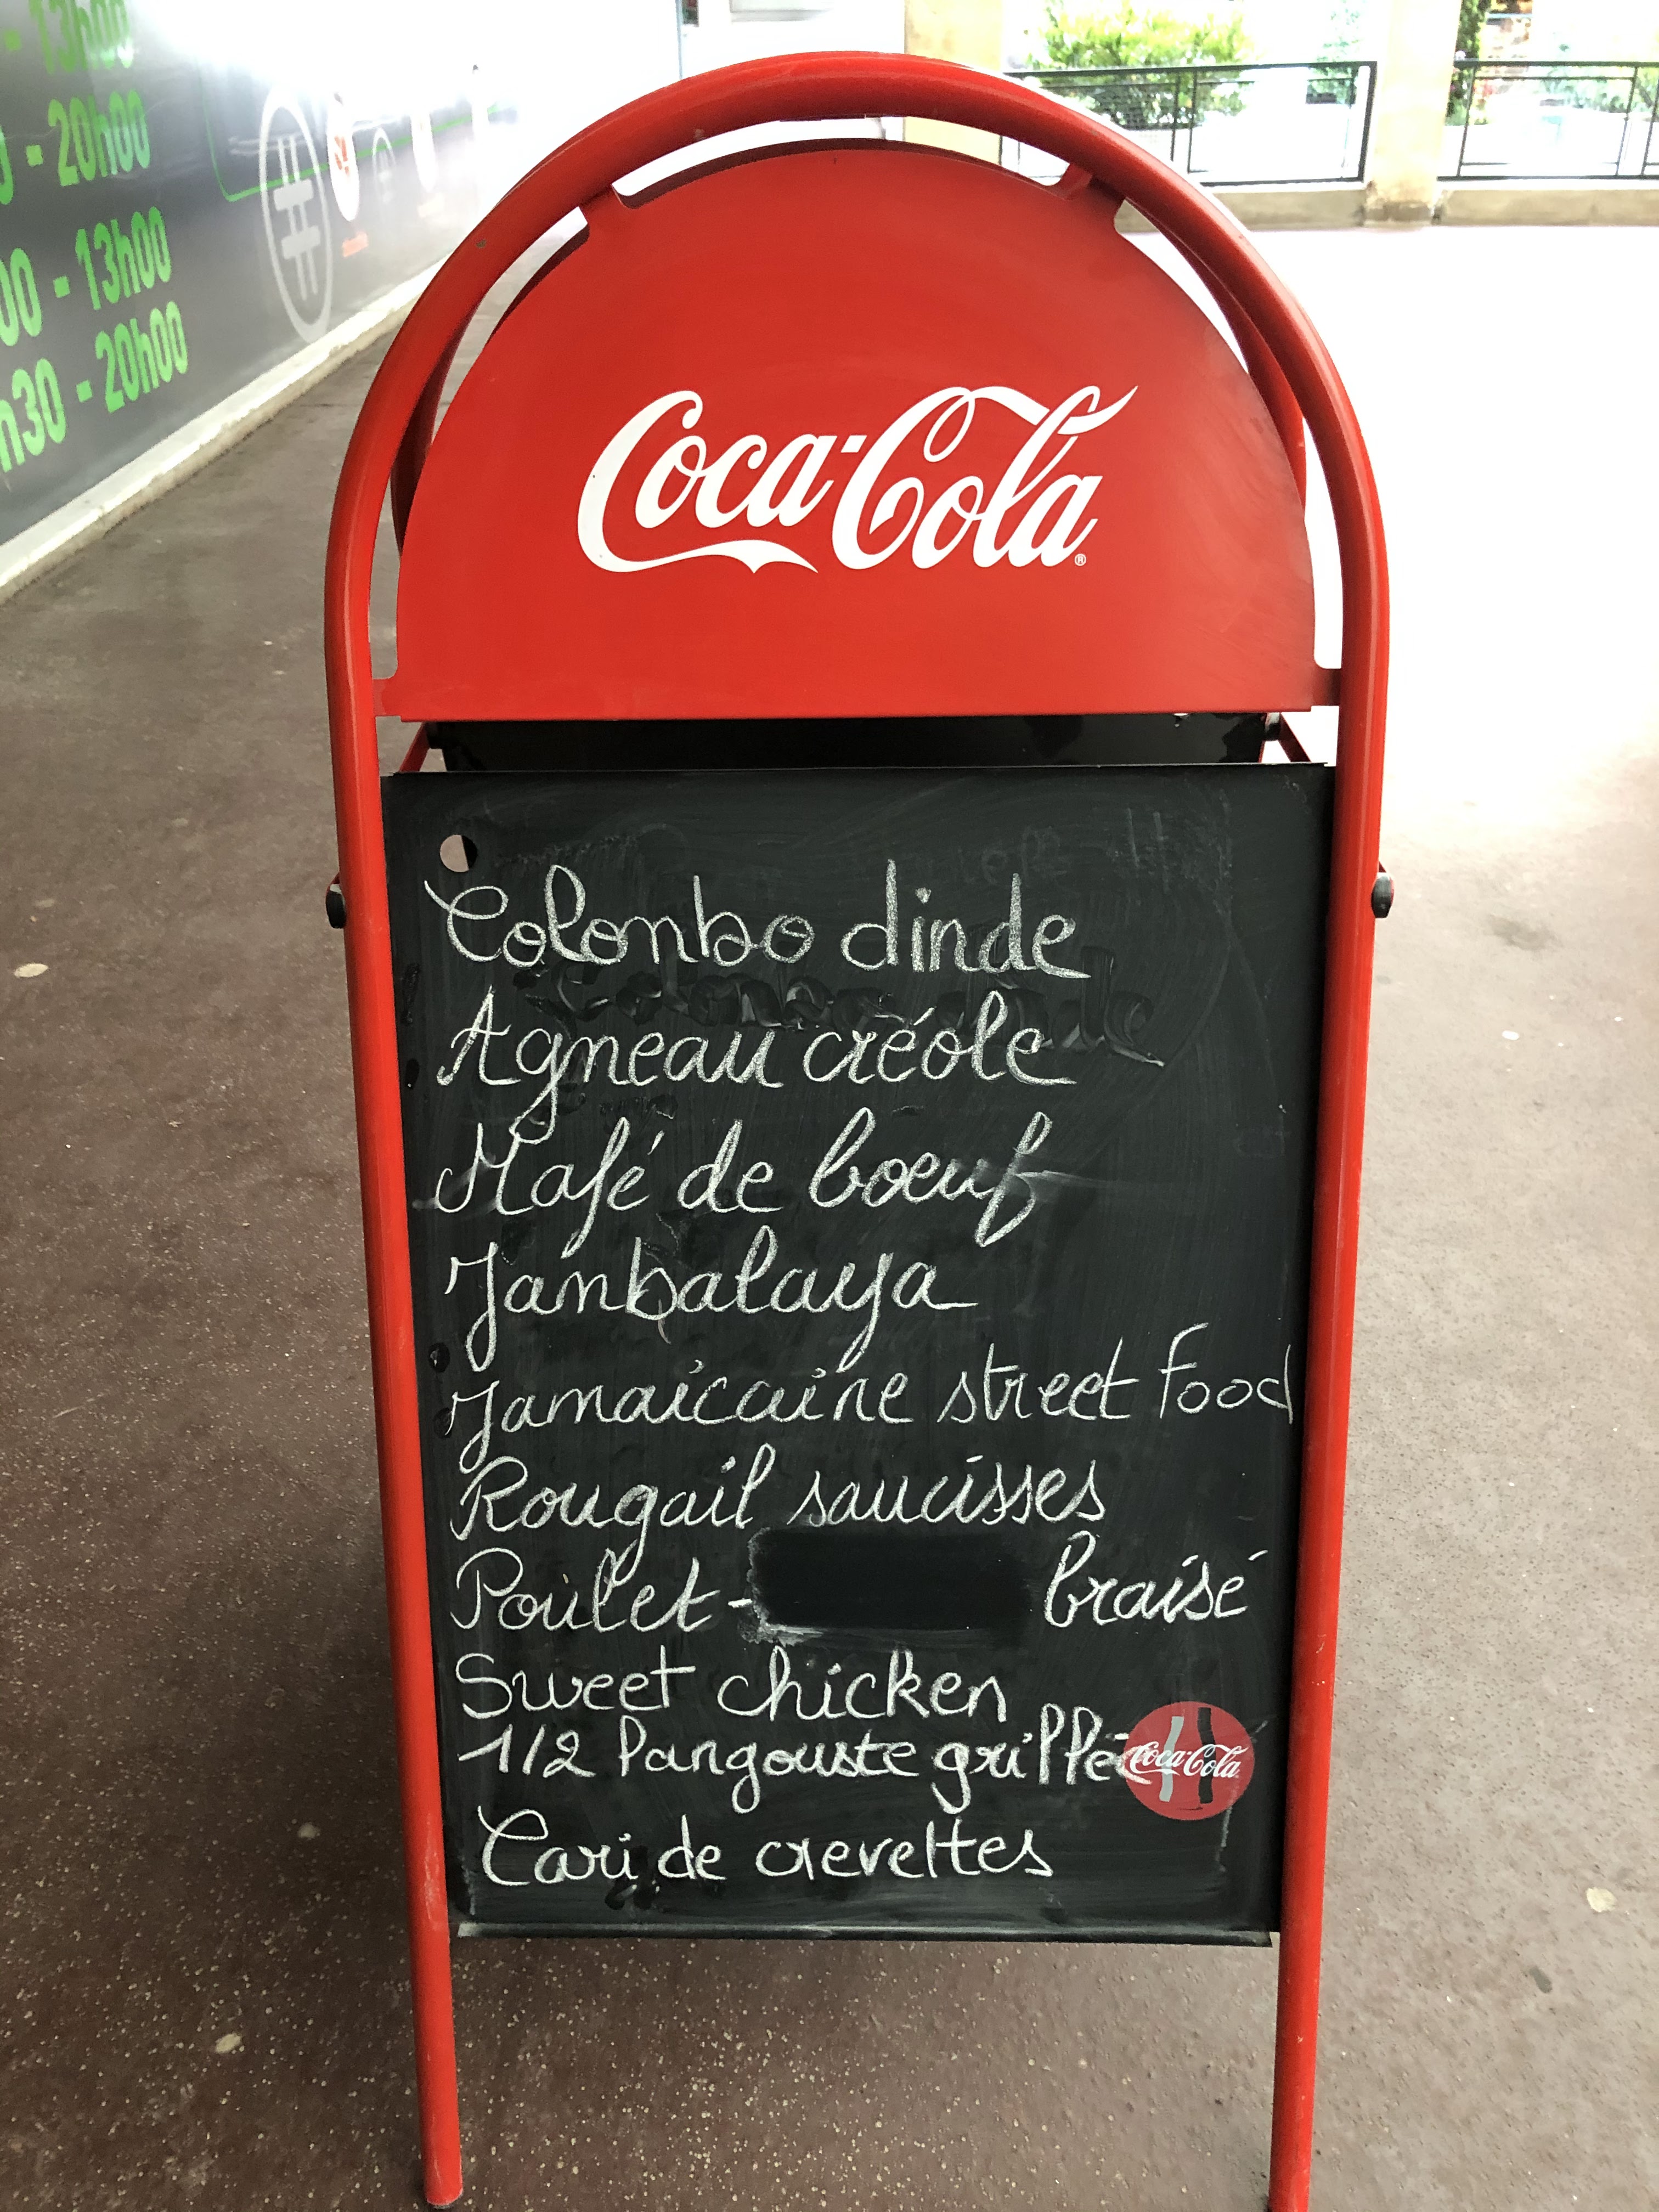 - 13h00
- 20h00
00 - 13h00
h30 - 20h00
Coca-Cola
®
Colombo dinde
Agneau créole
Mafé de bœuf
Janbalaya
Jamaicaine street food
Rougail saucisses
Poulet - braisé
Sweet chicken
1/2 langouste grillée
Coca-Cola
Cari de crevettes